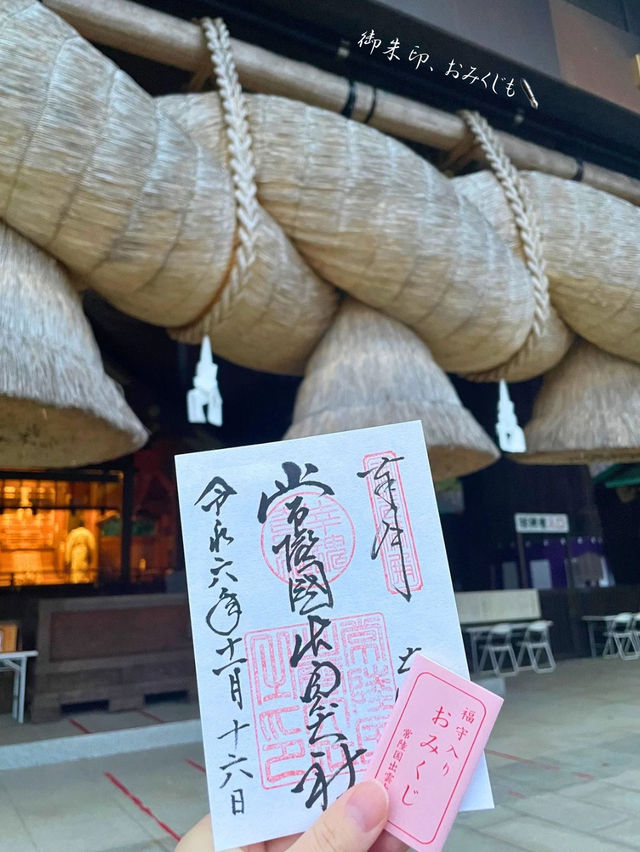 御朱印、おみくじも
奉拝
常陸國出雲大社
令和六年十一月十六日
福守入り
おみくじ
常陸国出雲